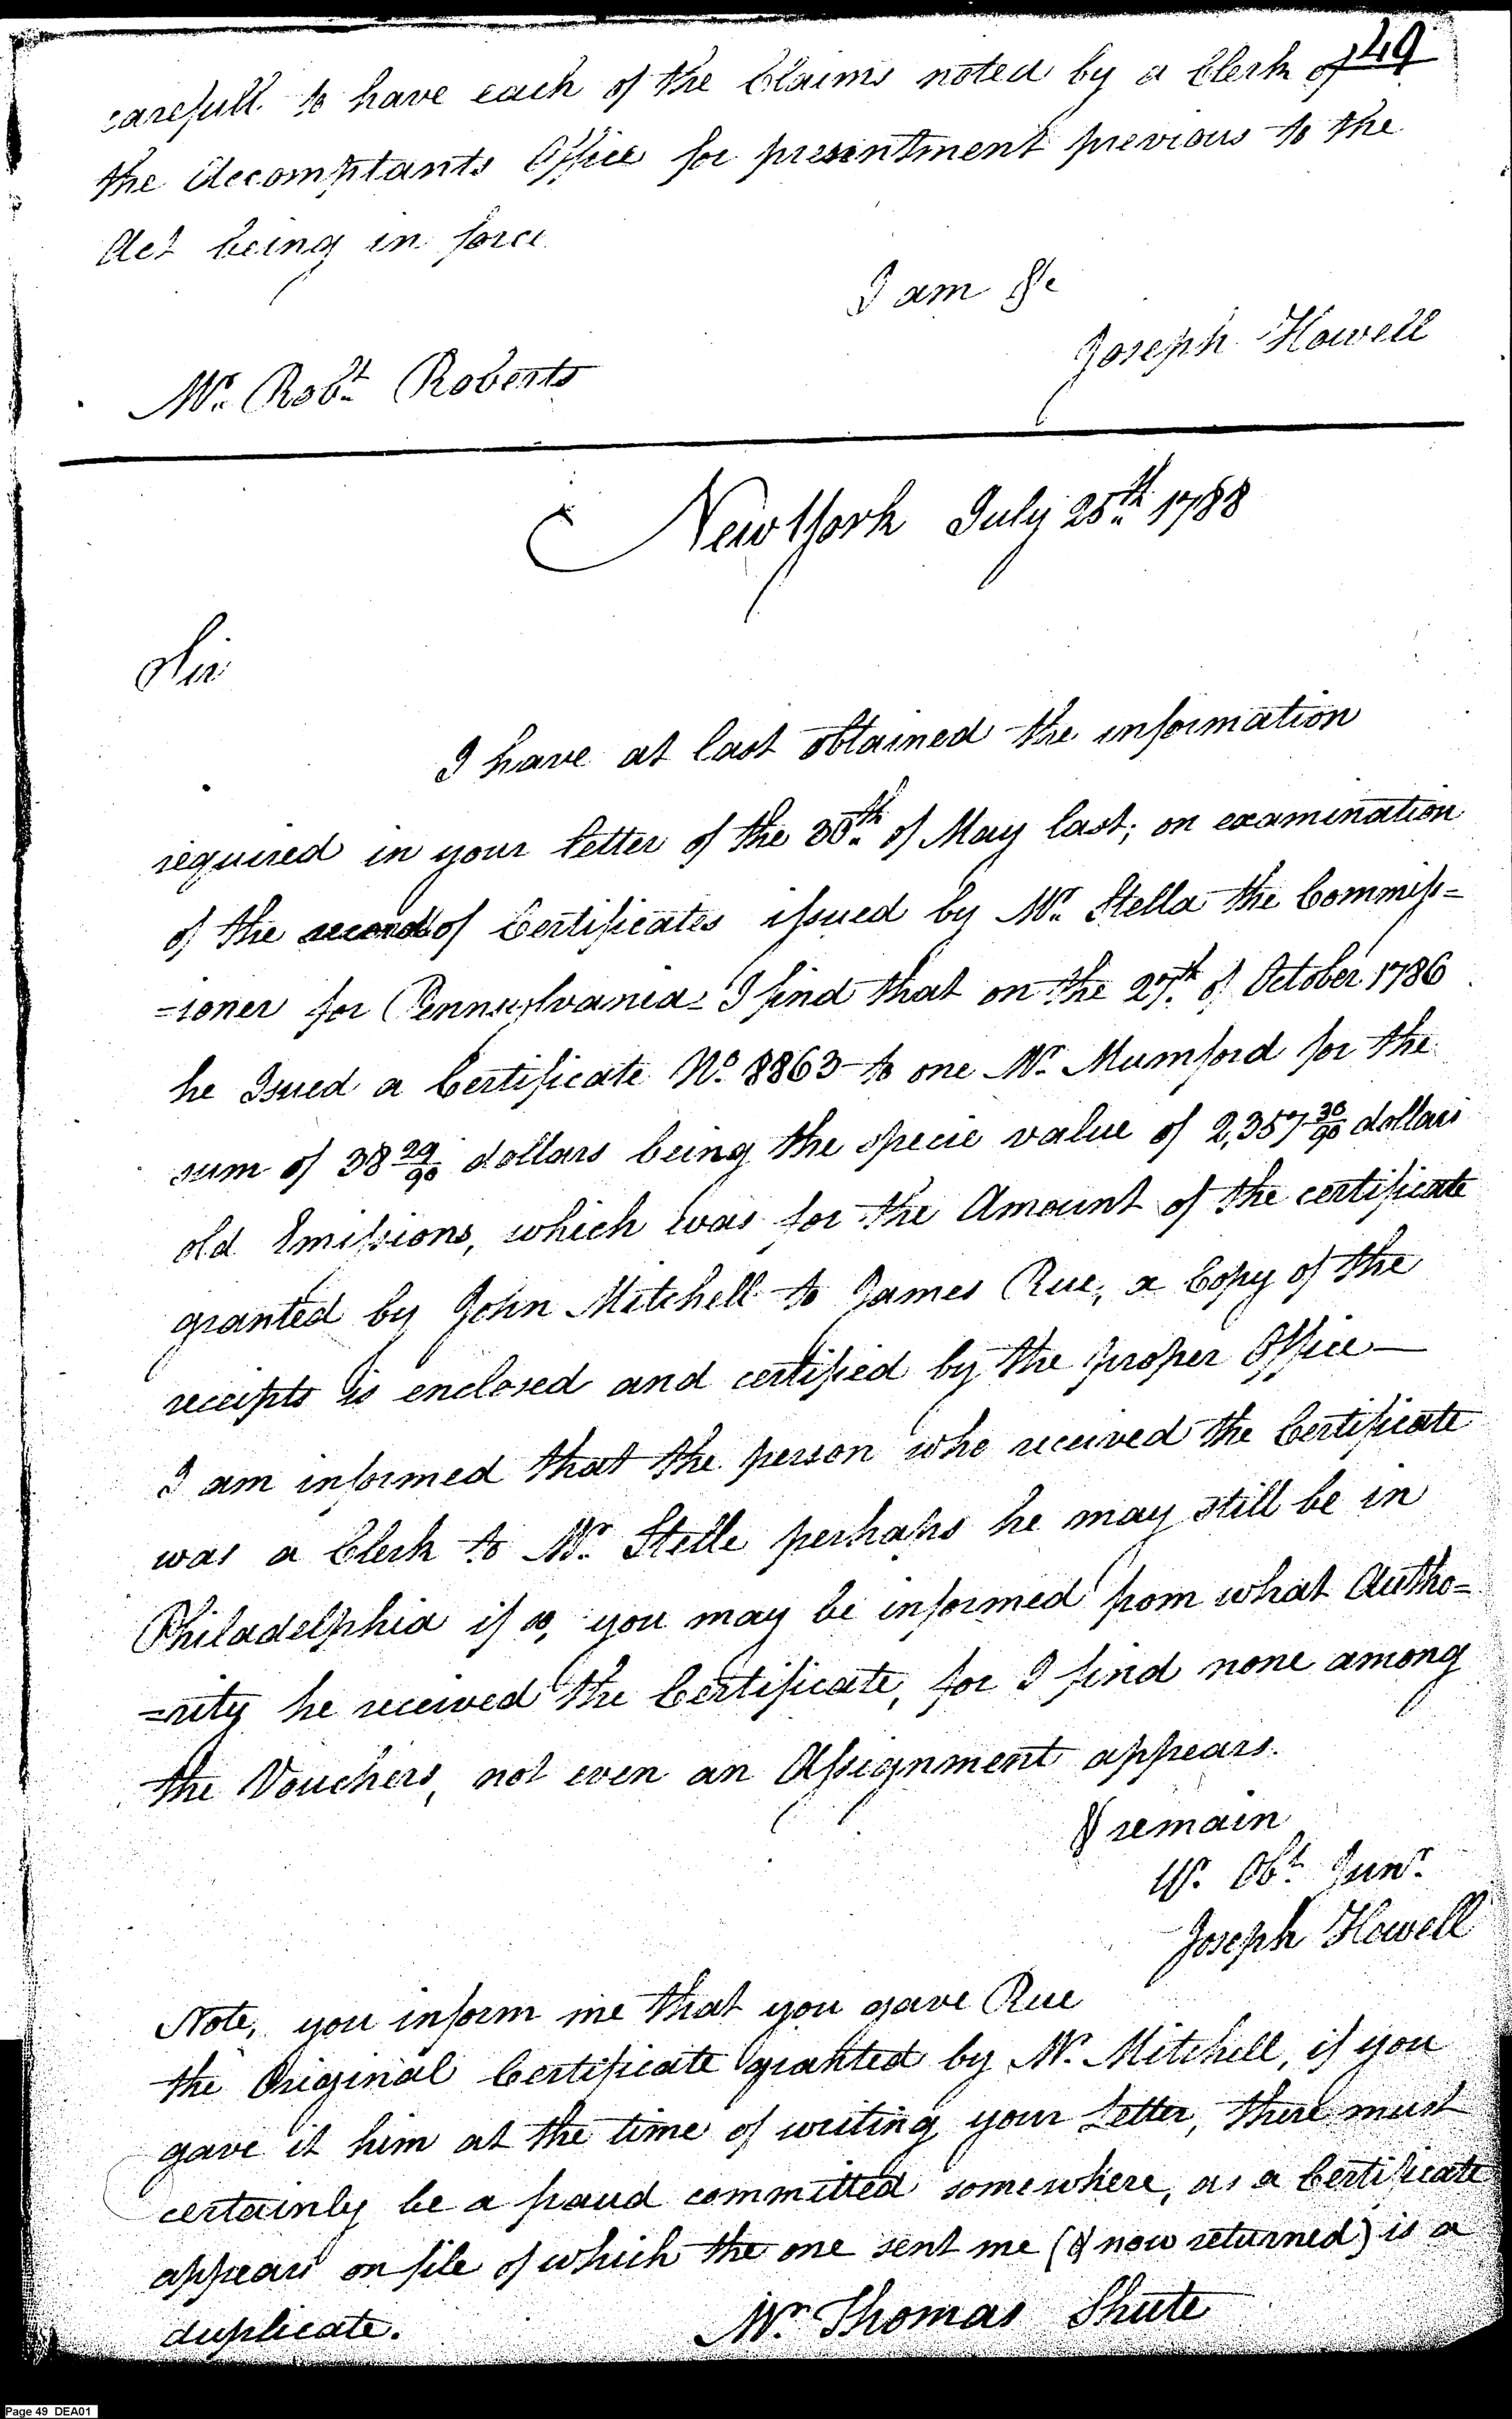 49
carefull to have each of the Claims noted by a Clerk of
the Accomptants Office for presentment previous to the
Act being in force
I am &c
Joseph Howell
Mr. Robt. Roberts
New York July 25th. 1788
Sir
I have at last obtained the information
required in your letter of the 30th. of May last; on examination
of the record of Certificates issued by Mr. Stella the Commiss=
=ioner for Pennsylvania I find that on the 27th. of October 1786
he Issued a Certificate No. 8863 to one Mr. Mumford for the
sum of 38 29/90 dollars being the specie value of 2,357 30/90 dollars
old Emissions, which was for the Amount of the certificate
granted by John Mitchell to James Rue, a Copy of the
receipts is enclosed and certified by the proper Office—
I am informed that the person who received the Certificate
was a Clerk to Mr. Stelle perhaps he may still be in
Philadelphia if so, you may be informed from what Autho=
=rity he received the Certificate, for I find none among
the Vouchers, not even an Assignment appears.
& remain
Yr. Obt. Sunr.
Joseph Howell
Note, you inform me that you gave Rue
the Original Certificate granted by Mr. Mitchell, if you
gave it him at the time of writing your Letter, there must
certainly be a fraud committed somewhere, as a Certificate
appears on file of which the one sent me (& now returned) is a
duplicate.
Mr. Thomas Shute
Page 49 DEA01